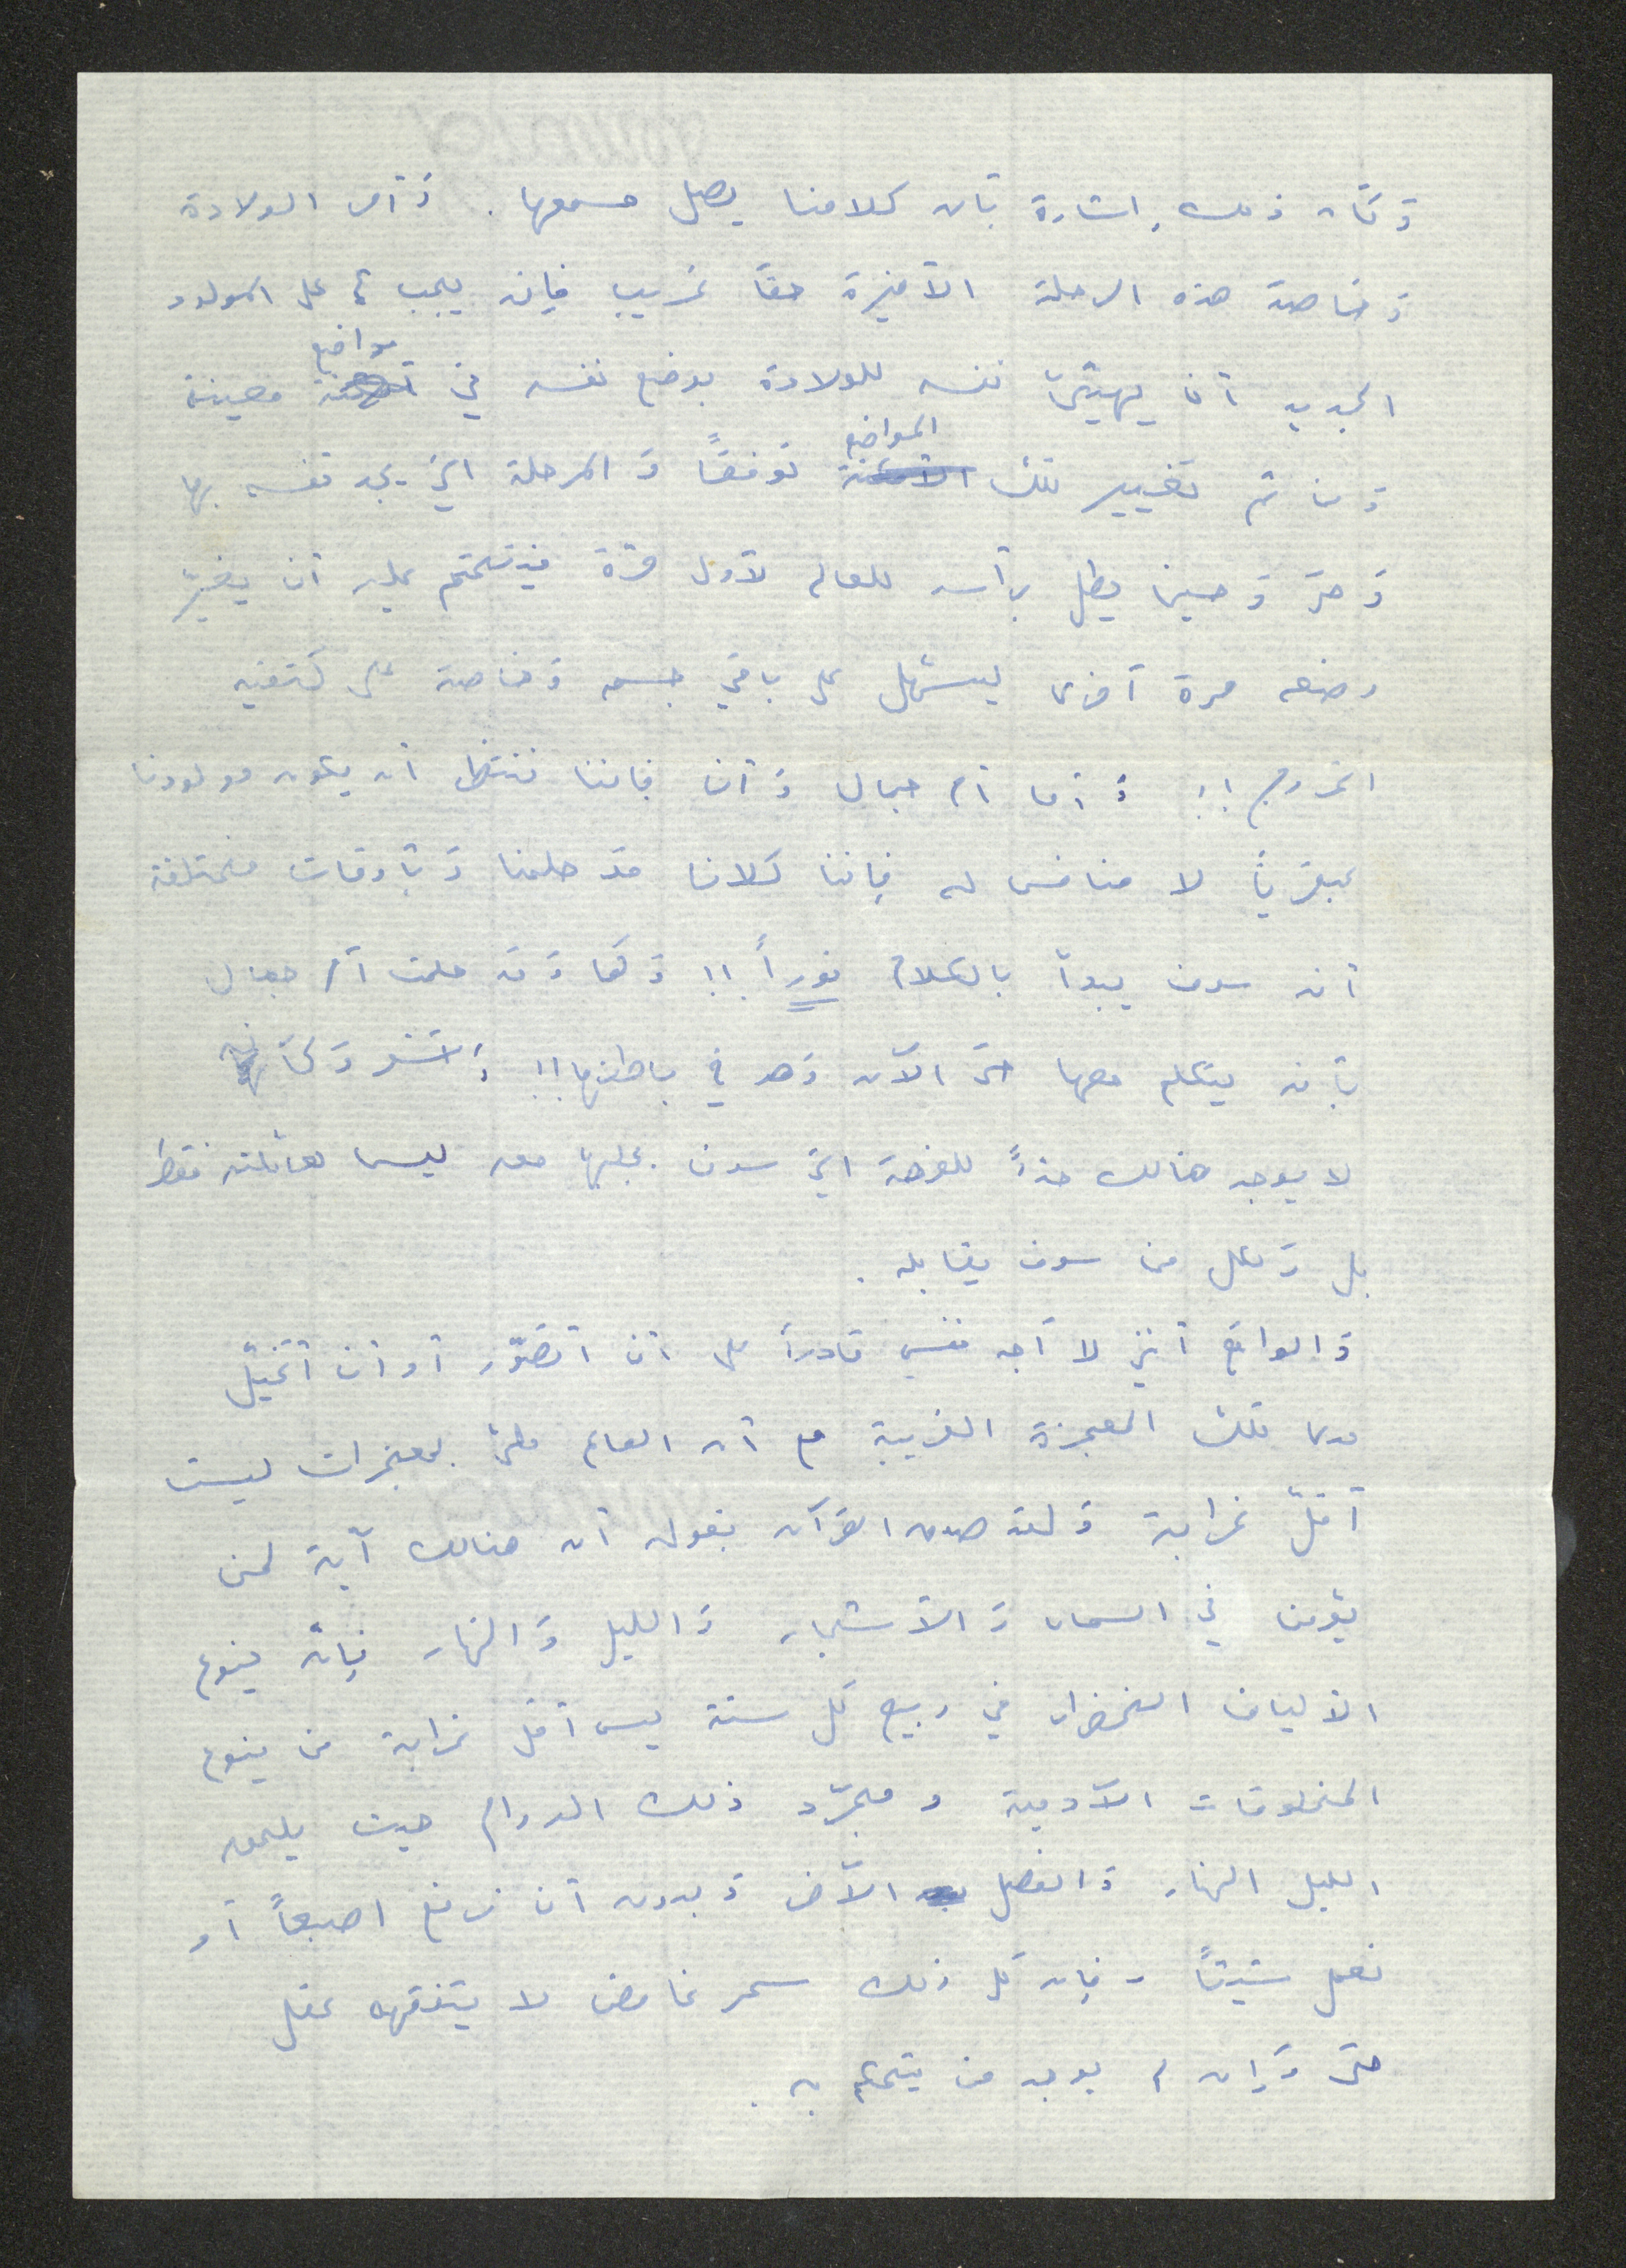 وَكأن ذلك إشارة بأن كلامنا يصل مسمعها. وَأمر الولادة
وَخاصة هذه المرحلة الأخيرة حقاً غريب فإنه يجب على المولود
الجديد أن يهيّئ نفسه للولادة بوضع نفسه في مواضع معينة
وَمن ثم تغيير تلك المواضع توفقاً وَالمرحلة التي يجد نفسه بها
وَحتى وَحينما يطل برأسه للعالم لأول مرّة فيتحتم عليه أن يغيّر
وضعه مرة أخرى ليسهّل على باقي جسمه وَخاصة على كتفيه
الخروج!! وَأما أم جمال وَأنا فإننا ننتظر أن يكون مولودنا
عبقرياً لا منافس له فإننا كلانا قد حلمنا وَبأوقات مختلفة
أنه سوف يبدأ بالكلام فوراً!! وَكما وَقد حلمت أم جمال
بأنه يتكلم معها حتى الآن وَهو في باطنها!! وَأشعر وَكأنه
لا يوجد هنالك حدّاً للفرحة التي سوف يجلبها معه ليس لعائلته فقط
بل وَلكل من سوف يقابله.
وَالواقع أنني لا أجد نفسي قادراً على أن أتصوّر أو أن أتخيّل
مدى تلك المعجزة الغريبة مع أن العالم مليء بمعجزات ليست
أقلّ غرابة وَلقد صدق القرآن بقوله أن هنالك آية لمن
يؤمن في السماء وَالأشجار وَالليل وَالنهار فإنّ ينوع
الألياف الخضراء في ربيع كل سنة ليس أقل غرابة من ينوع
المخلوقات الآدمية و مجرّد ذلك الدوام حيث يلحق
الليل النهار وَالفصل الآخر وَبدون أن نرفع اصبعاً أو
نعمل شيئاً - فإن كل ذلك سحر غامض لا يتفقهه عقل
حتى وَإن لم يوجد من يتحكم به.